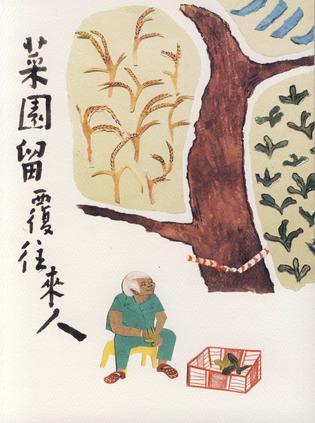 菜園留覆往來人